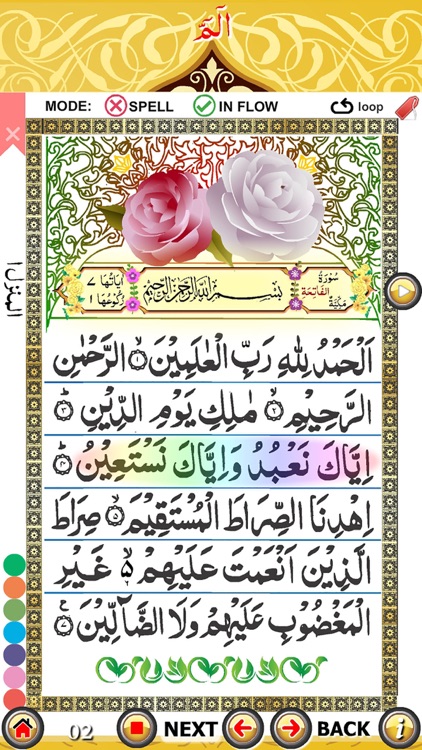 الٓمّٓ
MODE: SPELL IN FLOW loop
سُورَةُ الْفَاتِحَةِ مَكِّيَّةٌ
بِسْمِ اللهِ الرَّحْمٰنِ الرَّحِيْمِ
اٰيَاتُهَا ٧
رُكُوْعُهَا ١
اَلْحَمْدُ لِلّٰهِ رَبِّ الْعٰلَمِيْنَ ۙ﴿١﴾ الرَّحْمٰنِ
الرَّحِيْمِ ۙ﴿٢﴾ مٰلِكِ يَوْمِ الدِّيْنِ ؕ﴿٣﴾
اِيَّاكَ نَعْبُدُ وَاِيَّاكَ نَسْتَعِيْنُ ؕ﴿٤﴾
اِهْدِنَا الصِّرَاطَ الْمُسْتَقِيْمَ ۙ﴿٥﴾ صِرَاطَ
الَّذِيْنَ اَنْعَمْتَ عَلَيْهِمْ ۙ۬ۦ غَيْرِ
الْمَغْضُوْبِ عَلَيْهِمْ وَلَا الضَّآلِّيْنَ ﴿٧﴾
02 NEXT BACK i